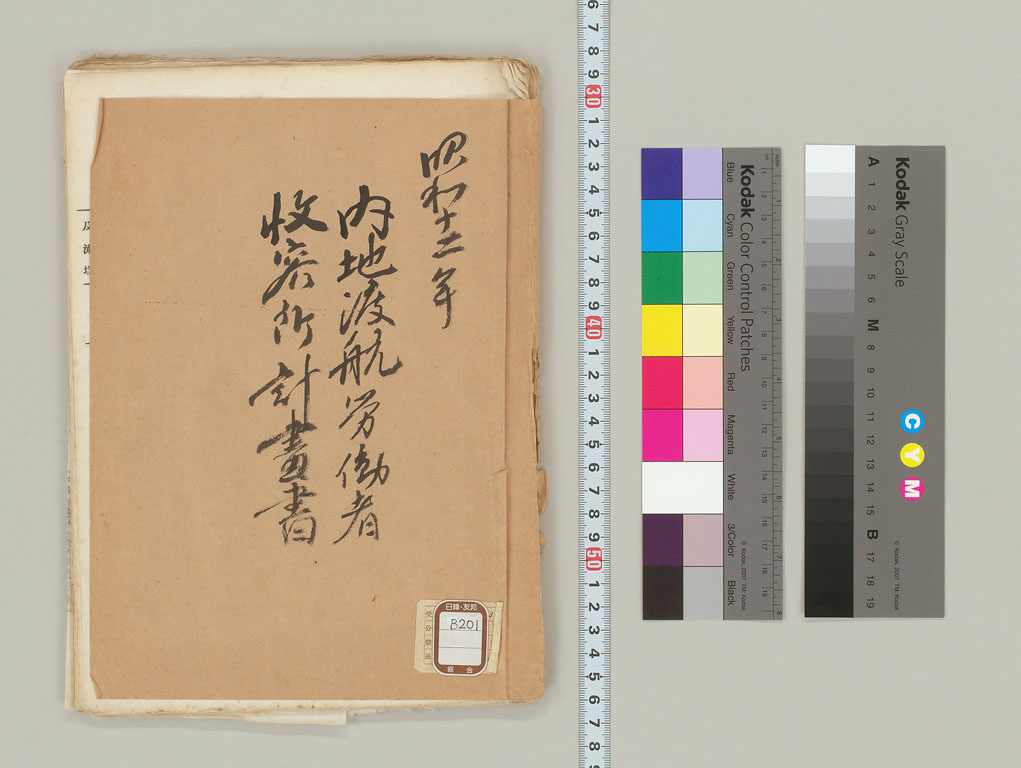 昭和十二年
内地渡航労働者
收容所計畫書
日韓・友邦
B201
協会
6 7 8 9 30 1 2 3 4 5 6 7 8 9 40 1 2 3 4 5 6 7 8 9 50 1 2 3 4 5 6 7 8
Kodak Color Control Patches
Blue
Cyan
Green
Yellow
Red
Magenta
White
3/Color
Black
© Kodak, 2007 TM: Kodak
Kodak Gray Scale
A 1 2 3 4 5 6 M 8 9 10 11 12 13 14 15 B 17 18 19
C Y M
© Kodak, 2007 TM: Kodak